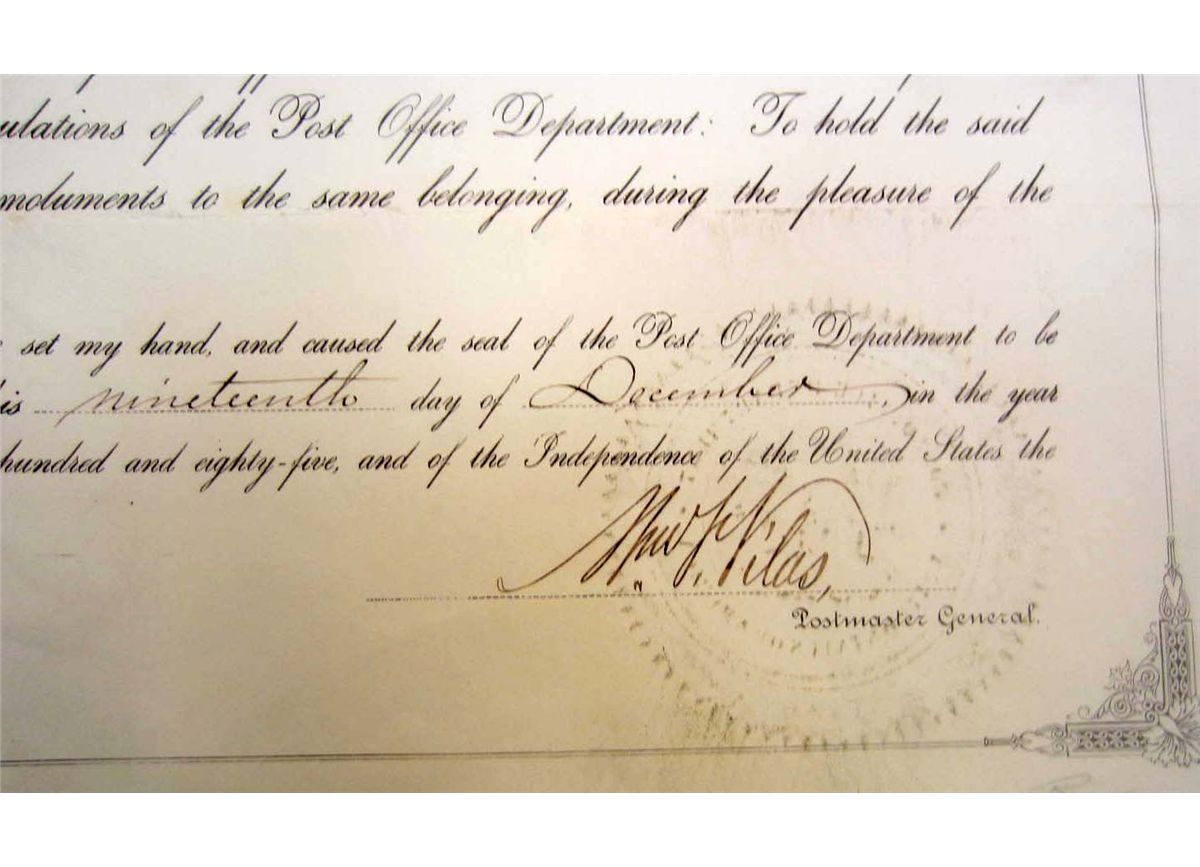 ulations of the Post Office Department: To hold the said
moluments to the same belonging, during the pleasure of the
set my hand, and caused the seal of the Post Office Department to be
is nineteenth day of December, in the year
hundred and eighty-five, and of the Independence of the United States the
Wm F. Vilas,
Postmaster General.